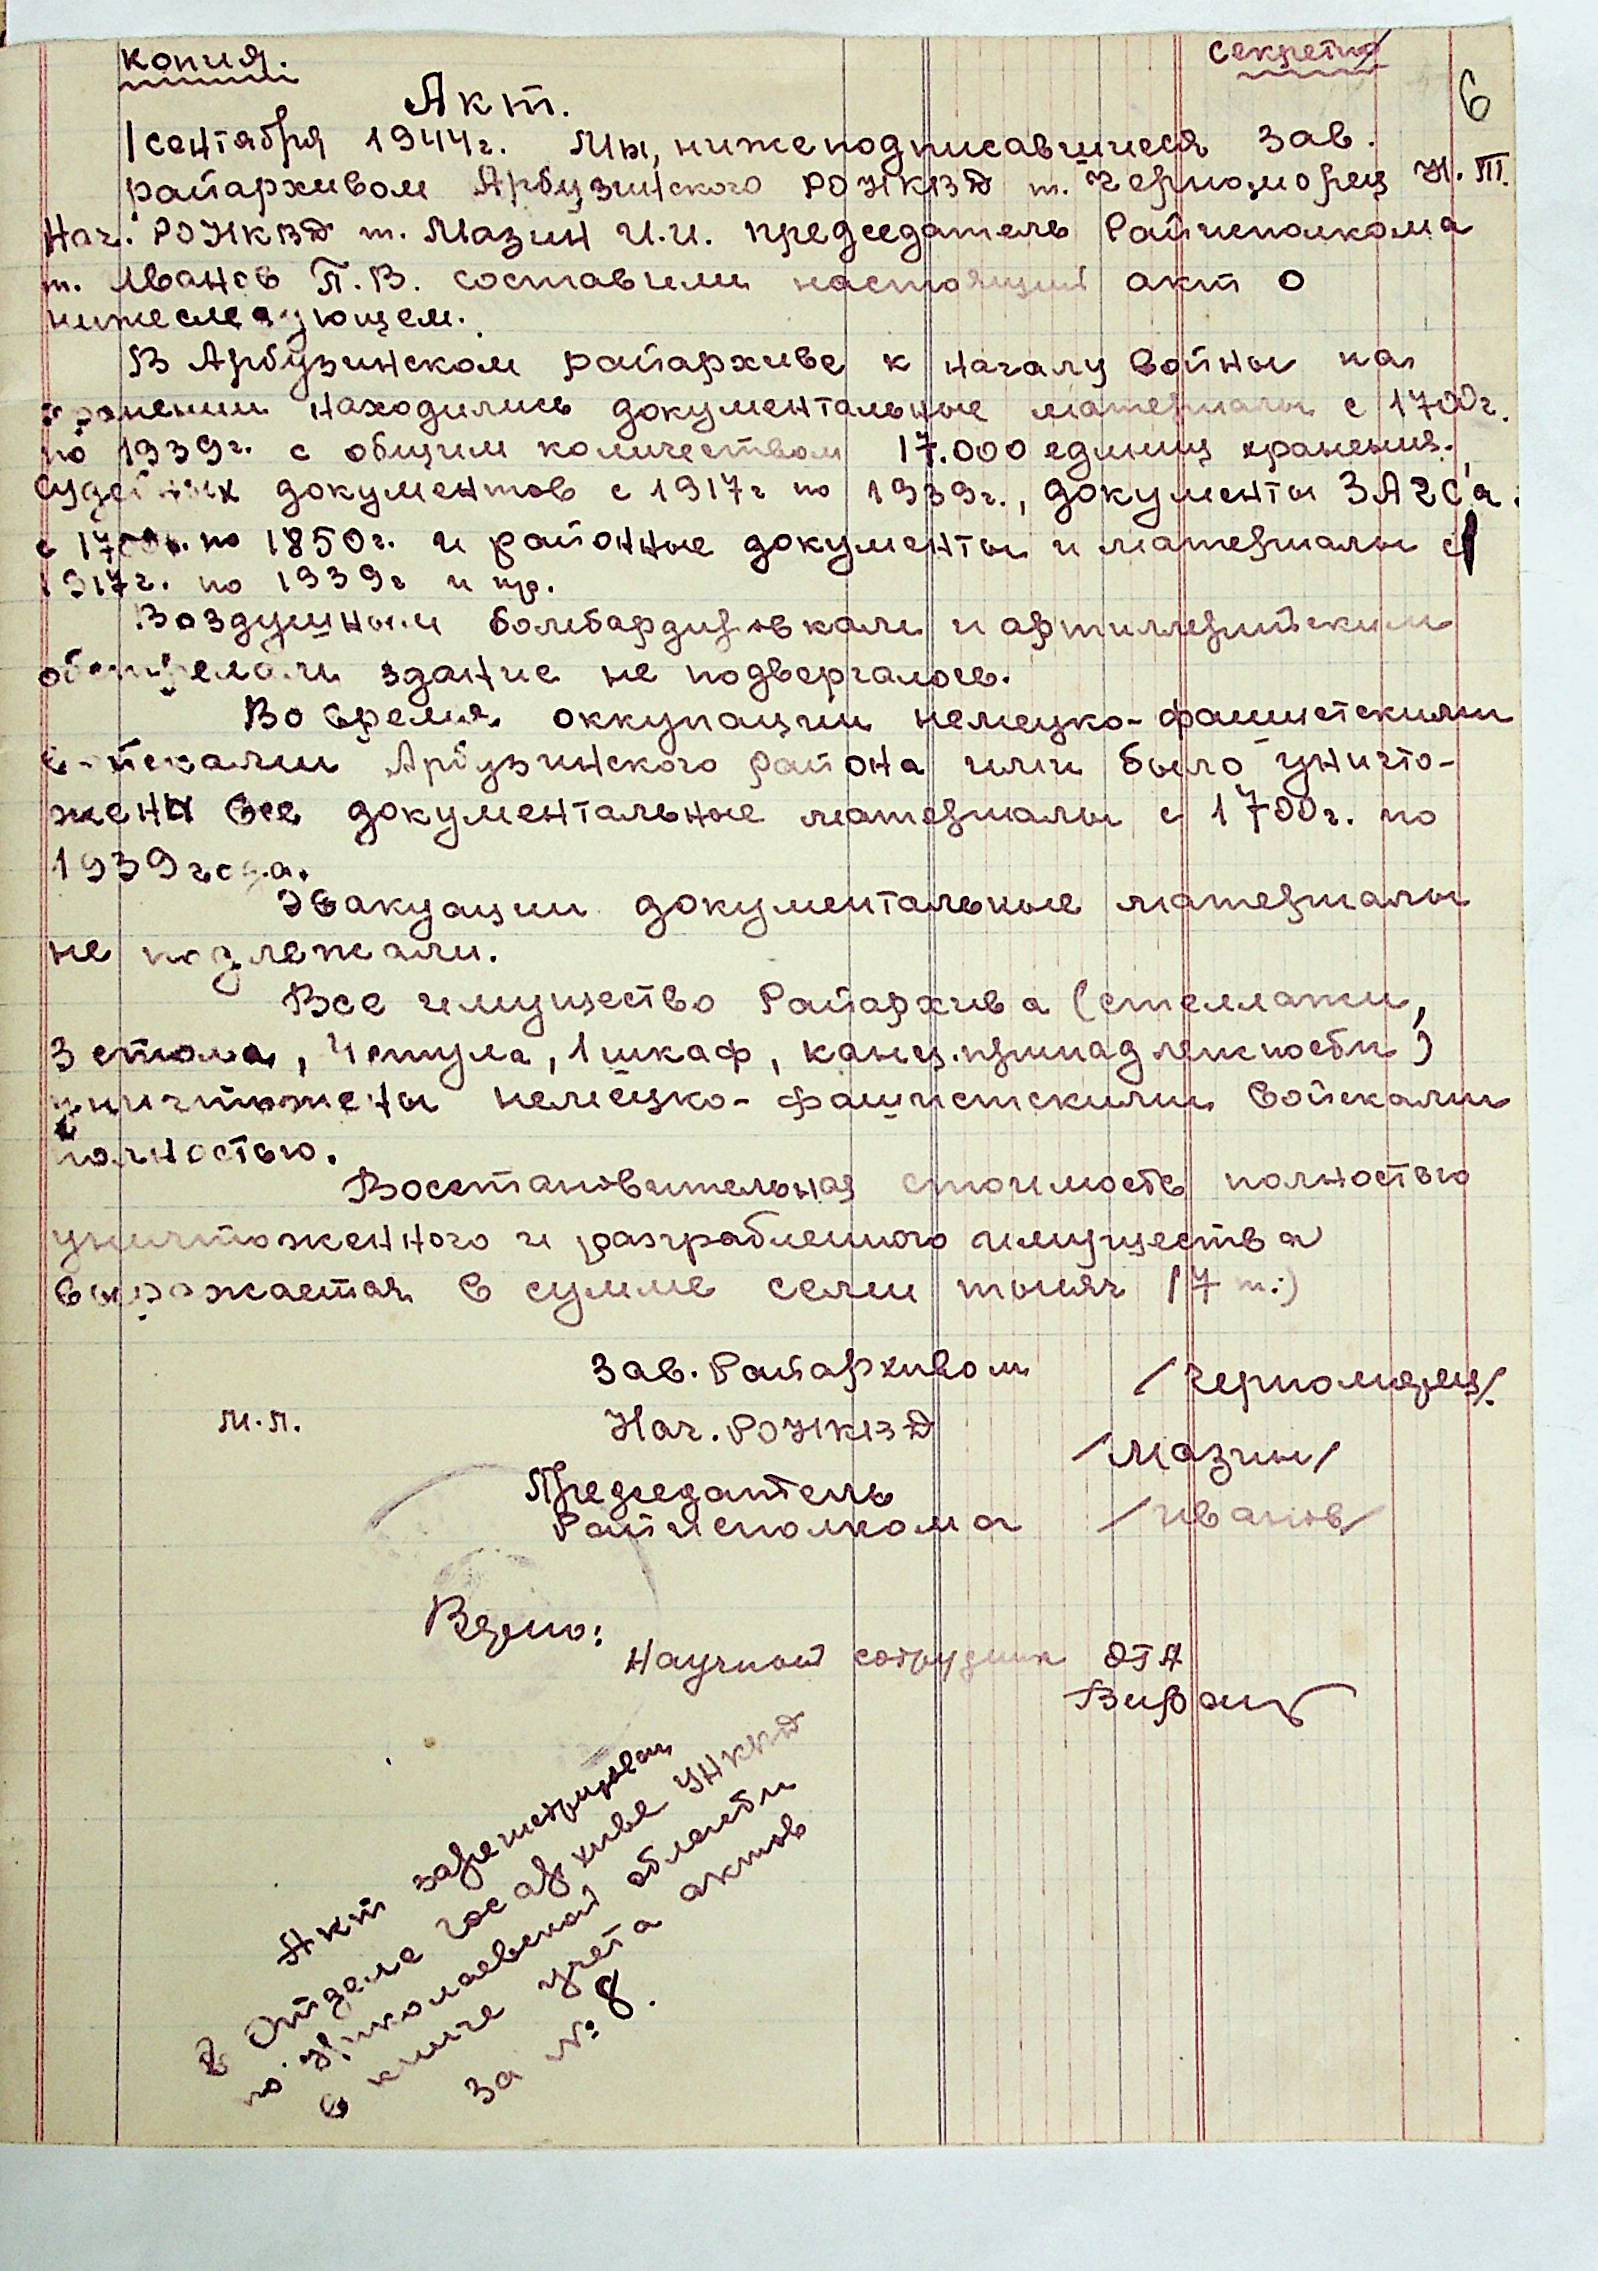 Копия.
Секретно
6
Акт.
1 сентября 1944г. Мы, нижеподписавшиеся Зав.
райархивом Арбузинского РОНКВД т. Черноморец Н.Т.
Нач. РОНКВД т. Мазин И.И. председатель Райисполкома
т. Иванов П.В. составили настоящий акт о
нижеследующем.
В Арбузинском райархиве к началу войны на
хранении находились документальные материалы с 1700г.
по 1939г. с общим количеством 17.000 единиц хранения.
Судебных документов с 1917г по 1939г., документы ЗАГС'а
с 1700г. по 1850г. и районные документы и материалы с
1917г. по 1939г и пр.
Воздушным бомбардировкам и артиллерийским
обстрелам здание не подвергалось.
Во время оккупации немецко-фашистскими
войсками Арбузинского района ими было уничто-
жены все документальные материалы с 1700г. по
1939 года.
Эвакуации документальные материалы
не подлежали.
Все имущество Райархива (стеллажи,
3 стола, 4 стула, 1 шкаф, канц.принадлежности)
уничтожены немецко-фашистскими войсками
полностью.
Восстановительная стоимость полностью
уничтоженного и разграбленного имущества
выражается в сумме семи тысяч (7 т.)
Зав. Райархивом /Черноморец/.
м.п. Нач. РОНКВД /Мазин/
Председатель
Райисполкома /Иванов/
Верно:
Научный сотрудник ОГА
Акт зарегистрирован
в Отделе Госархиве УНКВД
по Николаевской области
в книге учета актов
за №: 8.